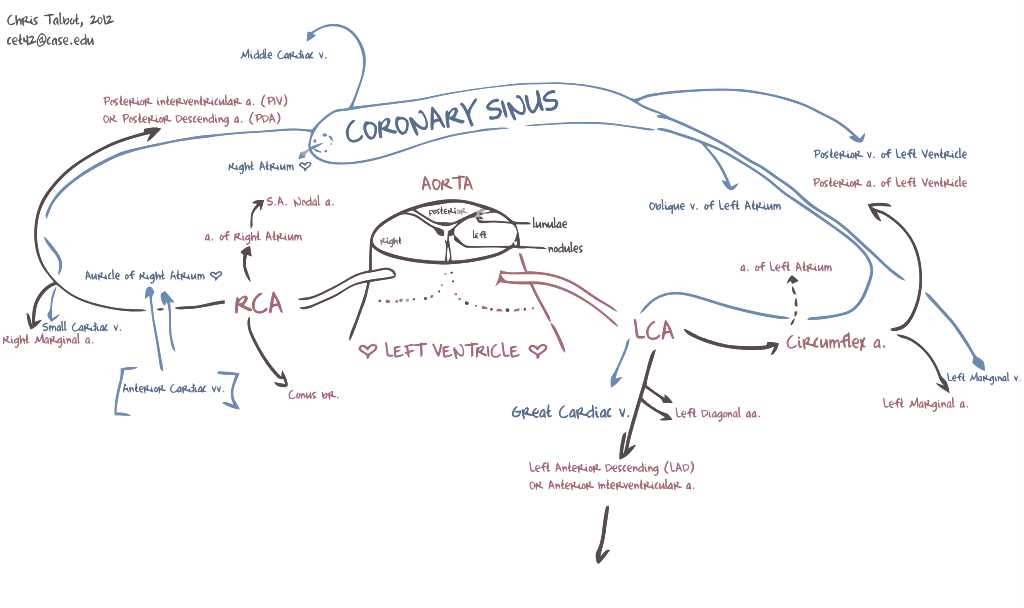 Chris Talbot, 2012
cet42@case.edu
Middle Cardiac v.
Posterior interventricular a. (PIV)
OR Posterior Descending a. (PDA)
CORONARY SINUS
Right Atrium ♡
Posterior v. of Left Ventricle
Posterior a. of Left Ventricle
AORTA
S.A. Nodal a.
posterior
Oblique v. of Left Atrium
lunulae
a. of Right Atrium
Right
left
nodules
Auricle of Right Atrium ♡
a. of Left Atrium
RCA
Small Cardiac v.
Right Marginal a.
LCA
Circumflex a.
♡ LEFT VENTRICLE ♡
Left Marginal v.
Anterior Cardiac vv.
Conus br.
Left Marginal a.
Great Cardiac v.
Left Diagonal aa.
Left Anterior Descending (LAD)
OR Anterior interventricular a.